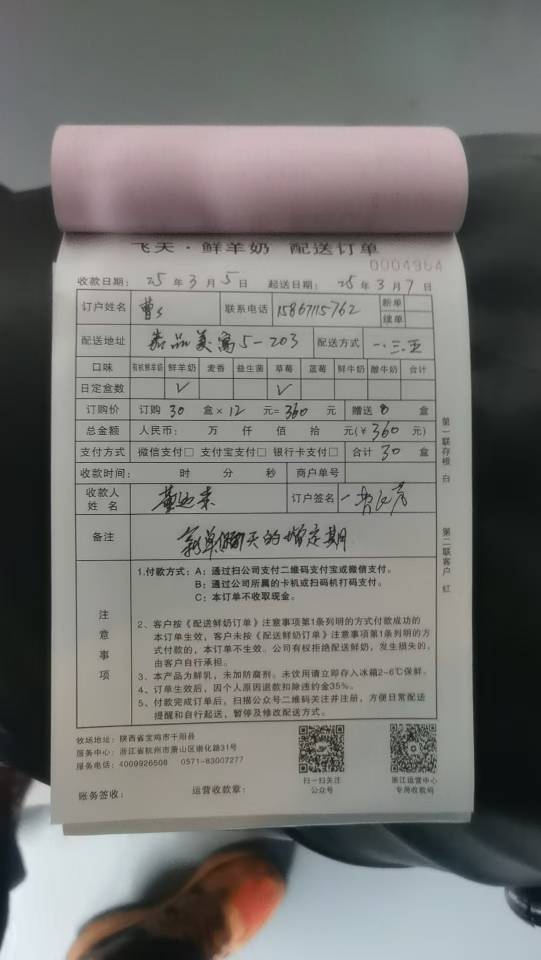 飞天·鲜羊奶 配送订单
0004964
收款日期：25年3月5日 起送日期：25年3月7日
订户姓名 曹 联系电话 15867115762 新单
续单
配送地址 品美寓5-203 配送方式 一.三.五
口味 有机鲜羊奶 鲜羊奶 麦香 益生菌 草莓 蓝莓 鲜牛奶 酸牛奶 合计
日定盒数 ✓ ✓
订购价 订购 30 盒 × 12 元 = 360 元 赠送 8 盒
总金额 人民币： 万 仟 佰 拾 元(￥360元)
支付方式 微信支付□ 支付宝支付□ 银行卡支付□ 合计 30 盒
收款时间： 时 分 秒 商户单号
收款人姓名 订户签名
备注 新单 天的 定期
注意事项
1.付款方式：A：通过扫公司支付二维码支付宝或微信支付。
B：通过公司所属的卡机或扫码机打码支付。
C：本订单不收取现金。
2、客户按《配送鲜奶订单》注意事项第1条列明的方式付款成功的
本订单生效，客户未按《配送鲜奶订单》注意事项第1条列明的方
式付款的，本订单不生效。公司有权拒绝配送鲜奶，发生损失的，
由客户自行承担。
3、本产品为鲜乳，未加防腐剂。未饮用请立即存入冰箱2~6℃保鲜。
4、订单生效后，因个人原因退款扣除违约金35%。
5、付款完成订单后，扫描公众号二维码关注并注册，方便日常配送
提醒和自行起送，暂停及修改配送方式。
牧场地址：陕西省宝鸡市千阳县
服务中心：浙江省杭州市萧山区崇化路31号
服务电话：4009926508 0571-83007277
扫一扫关注
公众号
浙江运营中心
专用收款码
账务签收： 运营收款章：
第一联存根 白
第二联客户 红